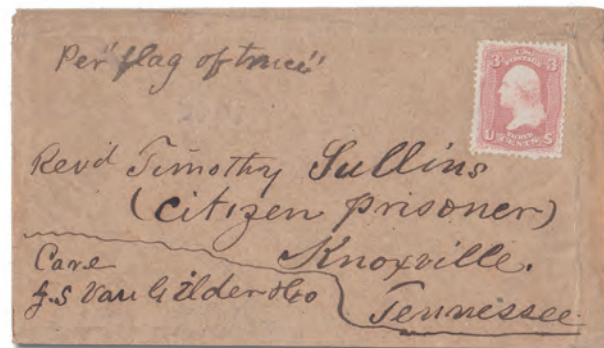 Per "flag of truce"
3 U.S. POSTAGE 3
U THREE CENTS S
Revd Timothy Sullins
(citizen prisoner)
Knoxville.
Tennessee
Care
J.S Van Gilder & Co